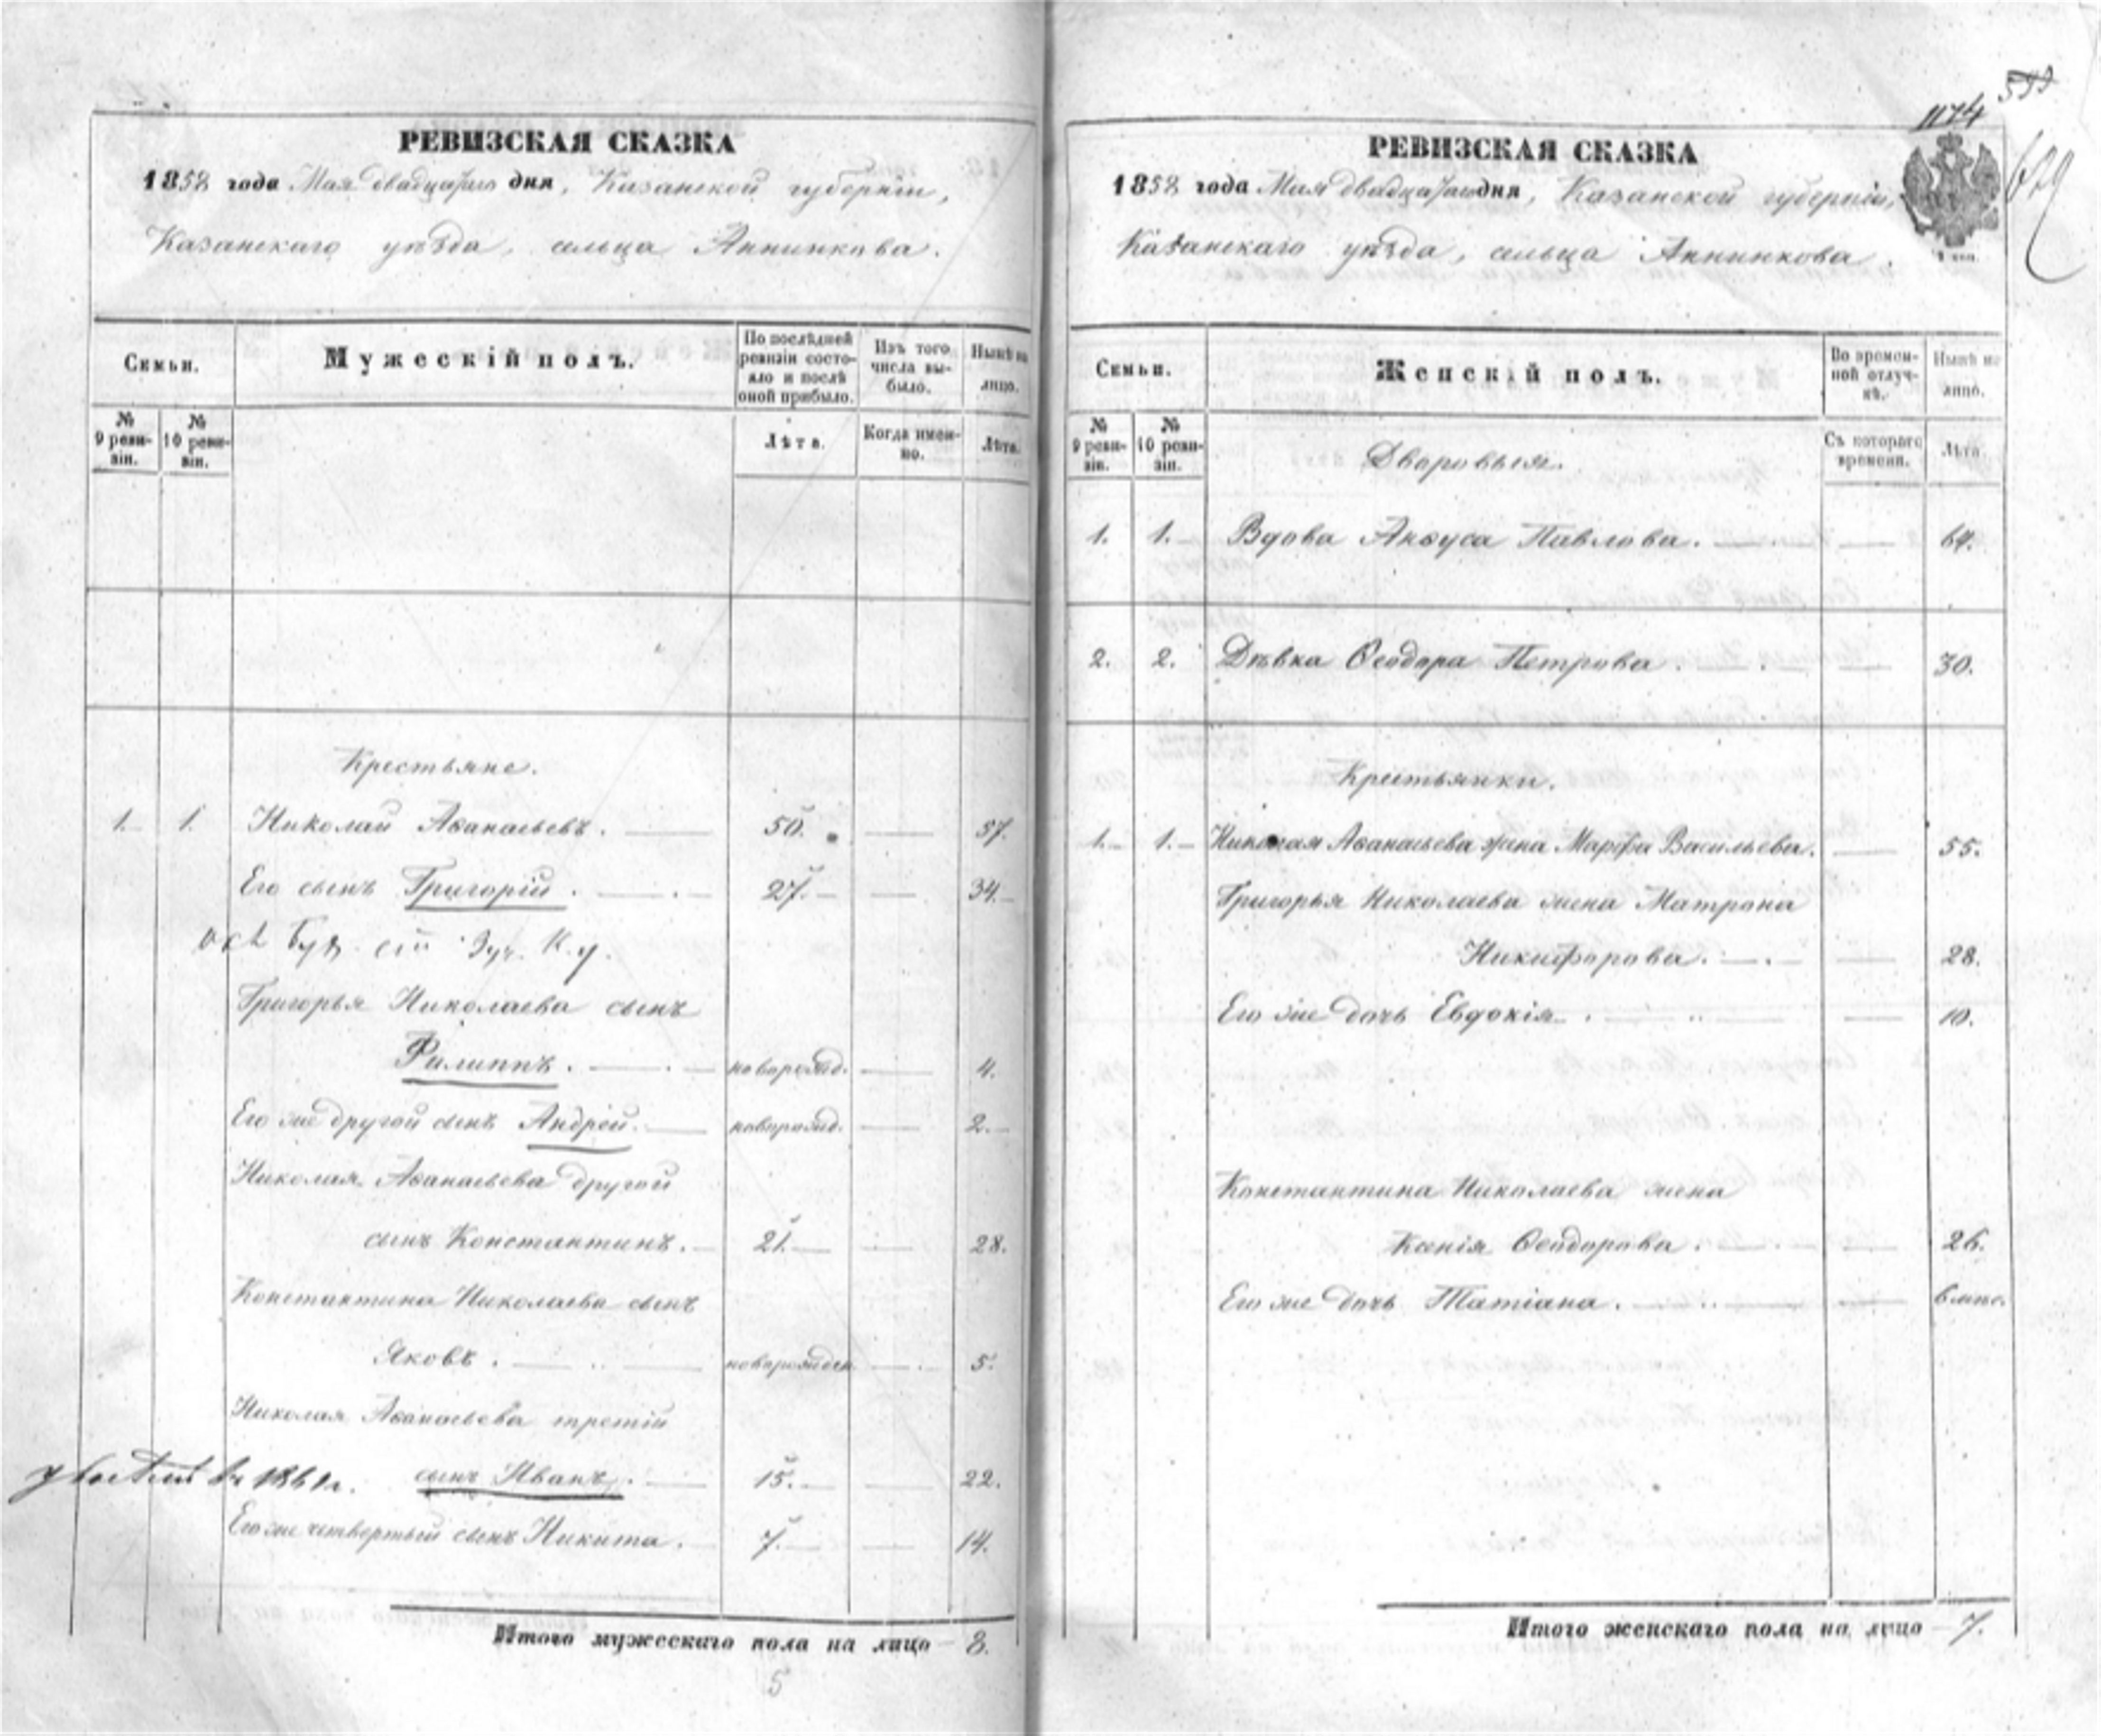 РЕВИЗСКАЯ СКАЗКА
1858 года Мая двадцатаго дня, Казанской губерніи,
Казанскаго уѣзда, сельца Аннинкова.
Семьи.
Мужескій полъ.
По послѣдней ревизіи состояло и послѣ оной прибыло.
Изъ того числа выбыло.
Нынѣ на лицо.
№ 9 ревизіи.
№ 10 ревизіи.
Лѣта.
Когда именно.
Лѣта.
Крестьяне.
1. 1. Николай Аѳанасьевъ. 50. 57.
Его сынъ Григорій. 27. 34.
Григорья Николаева сынъ
Филиппъ. новорожд. 4.
Его же другой сынъ Андрей. новорожд. 2.
Николая Аѳанасьева другой
сынъ Константинъ. 21. 28.
Константина Николаева сынъ
Яковъ. новорожден. 5.
Николая Аѳанасьева третій
въ 1861 г. сынъ Иванъ. 15. 22.
Его же четвертый сынъ Никита. 7. 14.
Итого мужескаго пола на лицо 8.
5
1174
РЕВИЗСКАЯ СКАЗКА
1858 года Мая двадцатаго дня, Казанской губерніи,
Казанскаго уѣзда, сельца Аннинкова.
Семьи.
Женскій полъ.
Во временной отлучкѣ.
Нынѣ на лицо.
№ 9 ревизіи.
№ 10 ревизіи.
Съ котораго времени.
Лѣта.
Дворовыя.
1. 1. Вдова Павлова. 64.
2. 2. Дѣвка Ѳеодора Петрова. 30.
Крестьянки.
1. 1. Николая Аѳанасьева жена Марфа Васильева. 55.
Григорья Николаева жена Матрона
Никифорова. 28.
Его же дочь Евдокія. 10.
Константина Николаева жена
Ксенія Ѳеодорова. 26.
Его же дочь Татіана. 6 мѣс.
Итого женскаго пола на лицо 7.